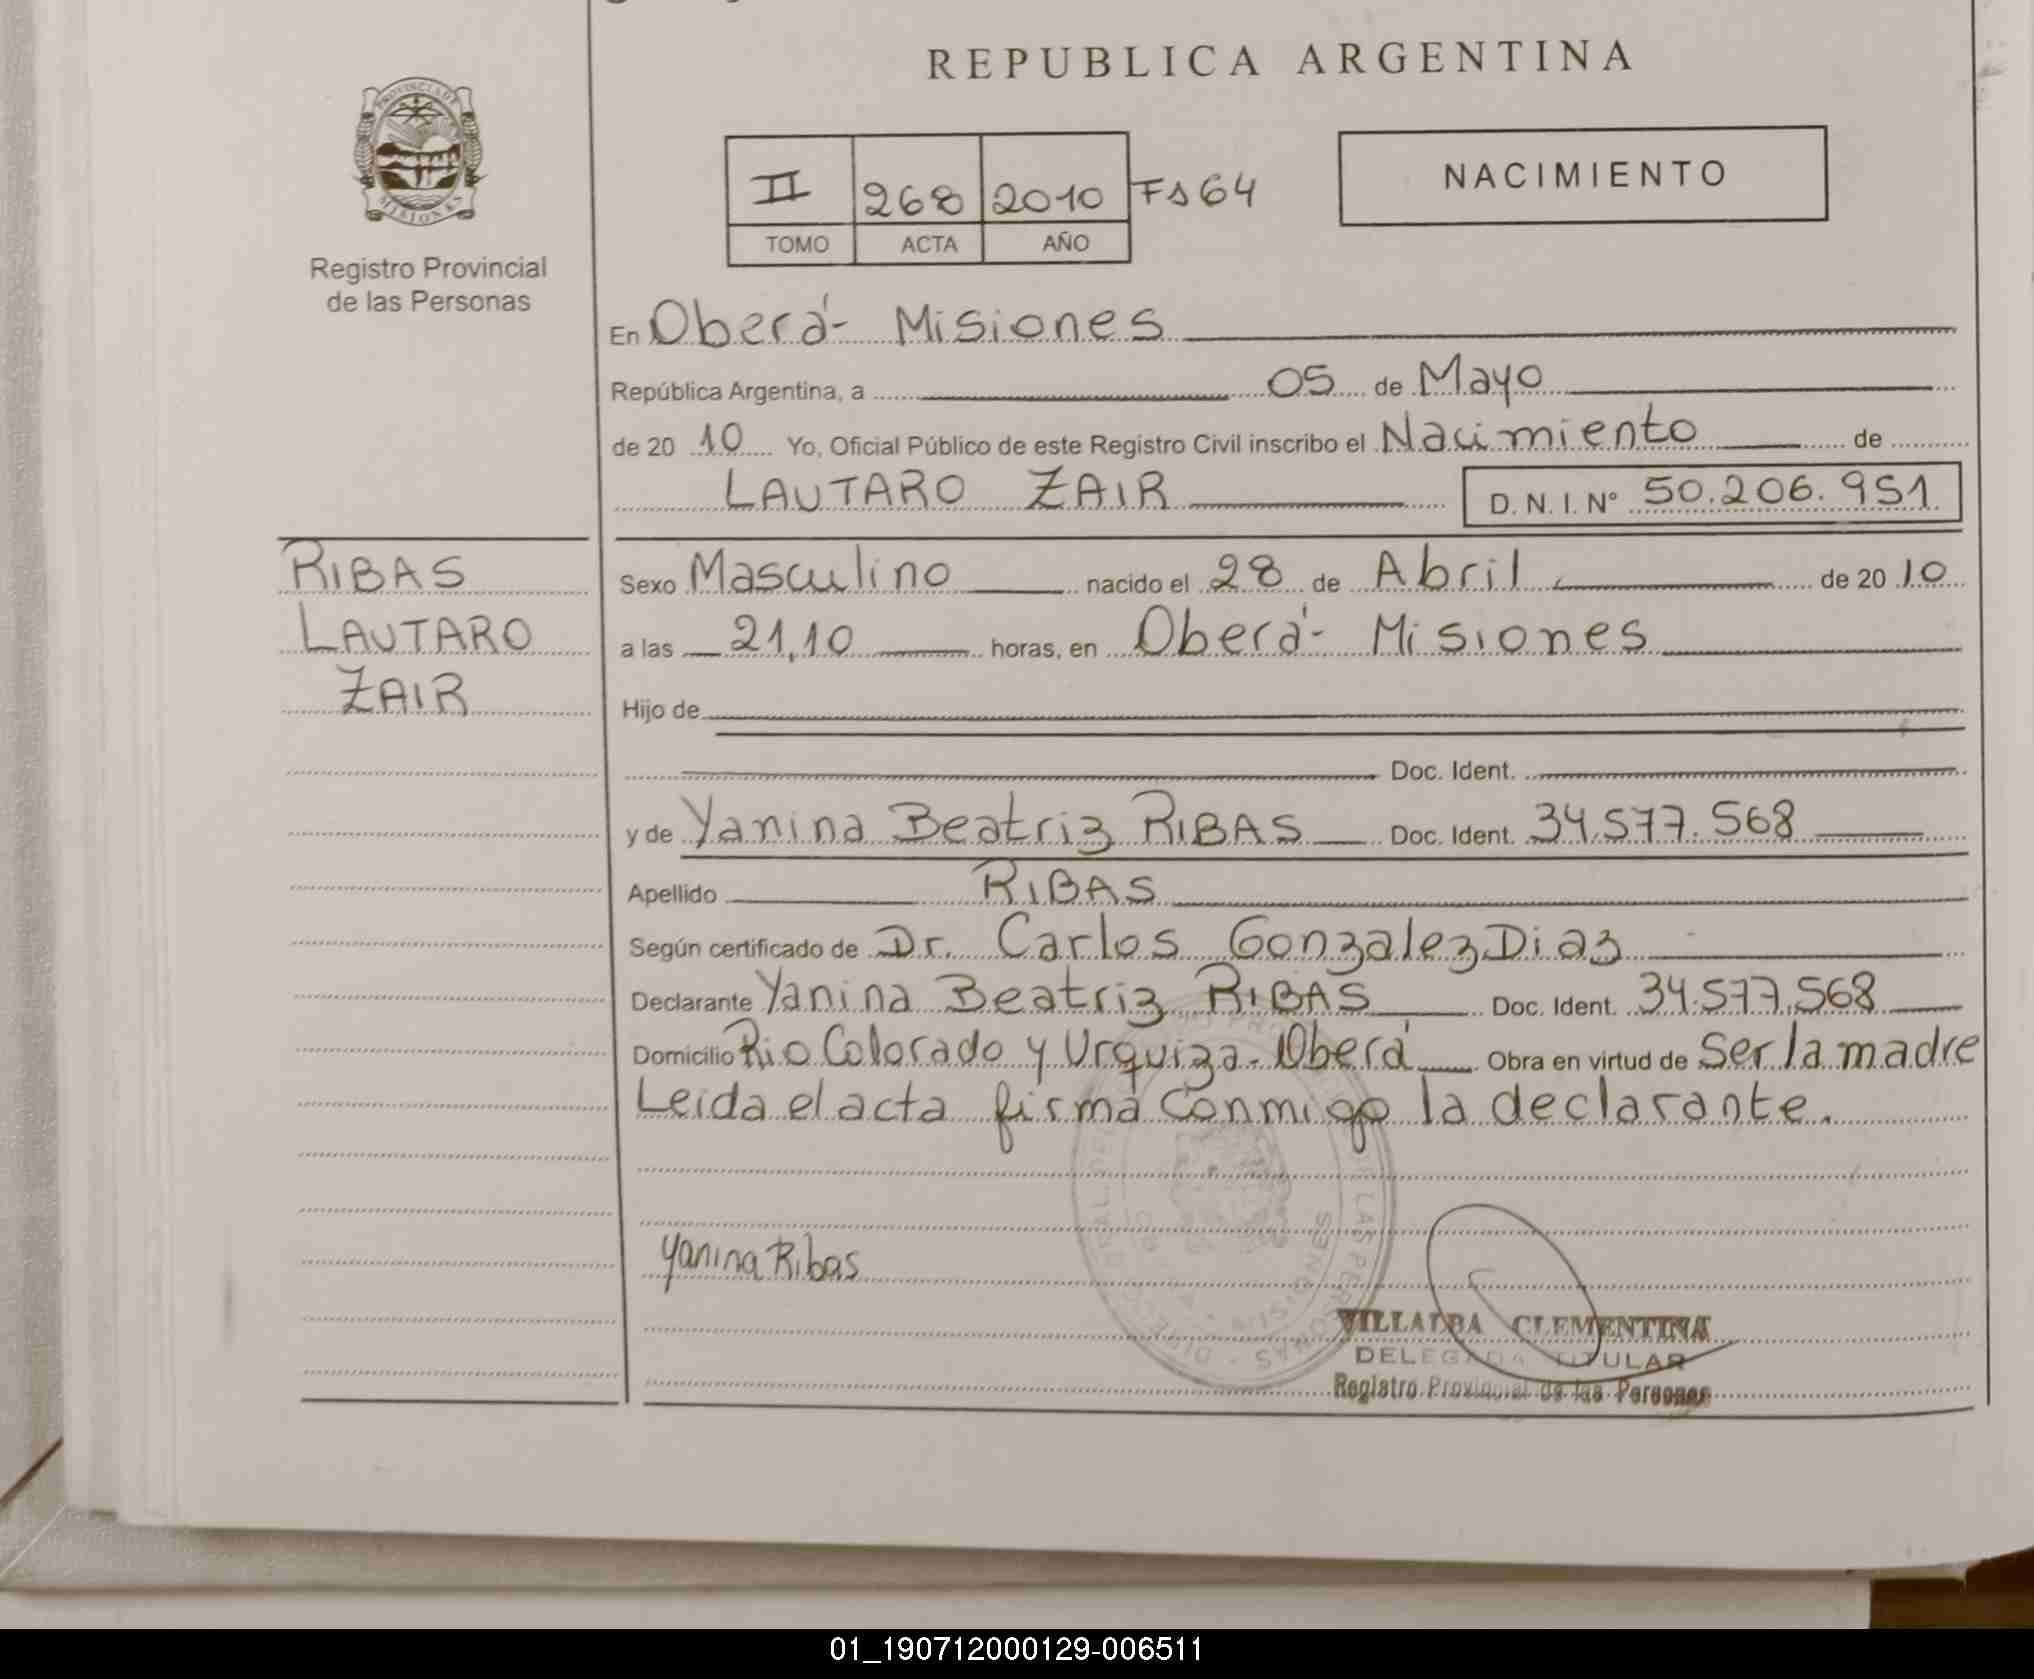 REPUBLICA ARGENTINA
PROVINCIA DE
MISIONES
Registro Provincial
de las Personas
II 268 2010 Fs 64
TOMO ACTA AÑO
NACIMIENTO
En Oberá - Misiones
República Argentina, a 05 de Mayo
de 20 10 Yo, Oficial Público de este Registro Civil inscribo el Nacimiento de
LAUTARO ZAIR D.N.I. Nº 50.206.951
RIBAS
LAUTARO
ZAIR
Sexo Masculino nacido el 28 de Abril de 20 10
a las 21,10 horas, en Oberá - Misiones
Hijo de
Doc. Ident.
y de Yanina Beatriz RIBAS Doc. Ident. 34.577.568
Apellido RIBAS
Según certificado de Dr. Carlos Gonzalez Diaz
Declarante Yanina Beatriz RIBAS Doc. Ident. 34.577.568
Domicilio Rio Colorado y Urquiza - Oberá Obra en virtud de Ser la madre
Leida el acta firma conmigo la declarante.
Yanina Ribas
VILLALBA CLEMENTINA
DELEGADA TITULAR
Registro Provincial de las Personas
01_190712000129-006511